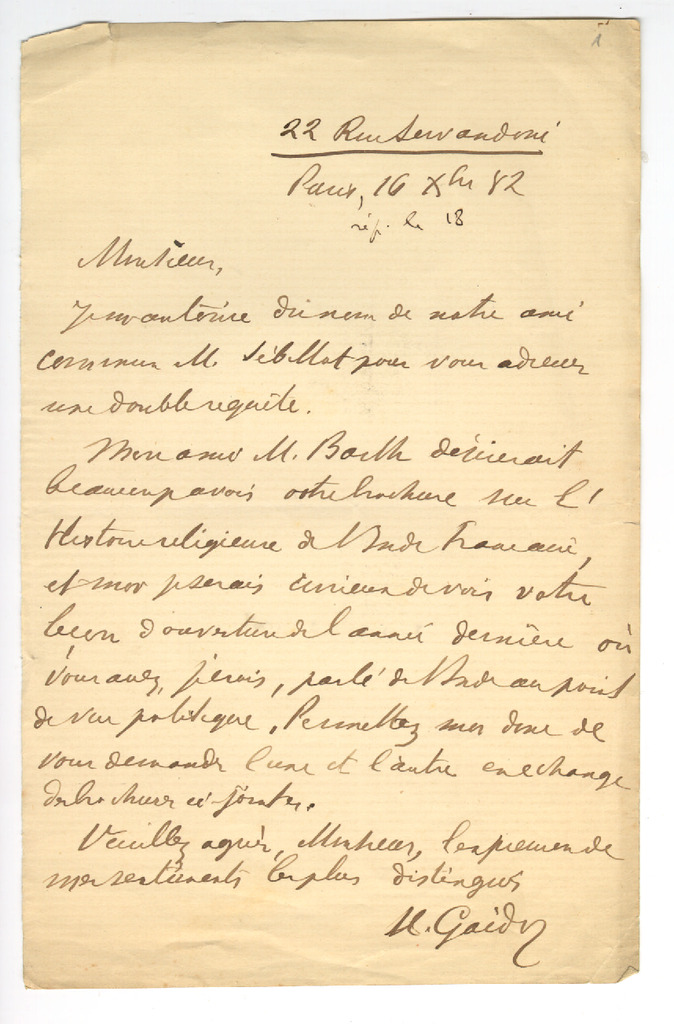 1
22 Rue Servandoni
Paris, 16 Xbre 82
rép. le 18
Monsieur,
Je m'autorise du nom de notre ami
commun M. Sébillot pour vous adresser
une double requête.
Mon ami M. Barth désirerait
beaucoup avoir votre brochure sur l'
Histoire religieuse de l'Inde Française,
et moi je serais curieux de voir votre
leçon d'ouverture de l'année dernière où
vous avez, je crois, parlé de l'Inde au point
de vue politique. Permettez moi donc de
vous demander l'une et l'autre en échange
des brochures ci-jointes.
Veuillez agréer, Monsieur, l'expression de
mes sentiments les plus distingués
H. Gaidoz